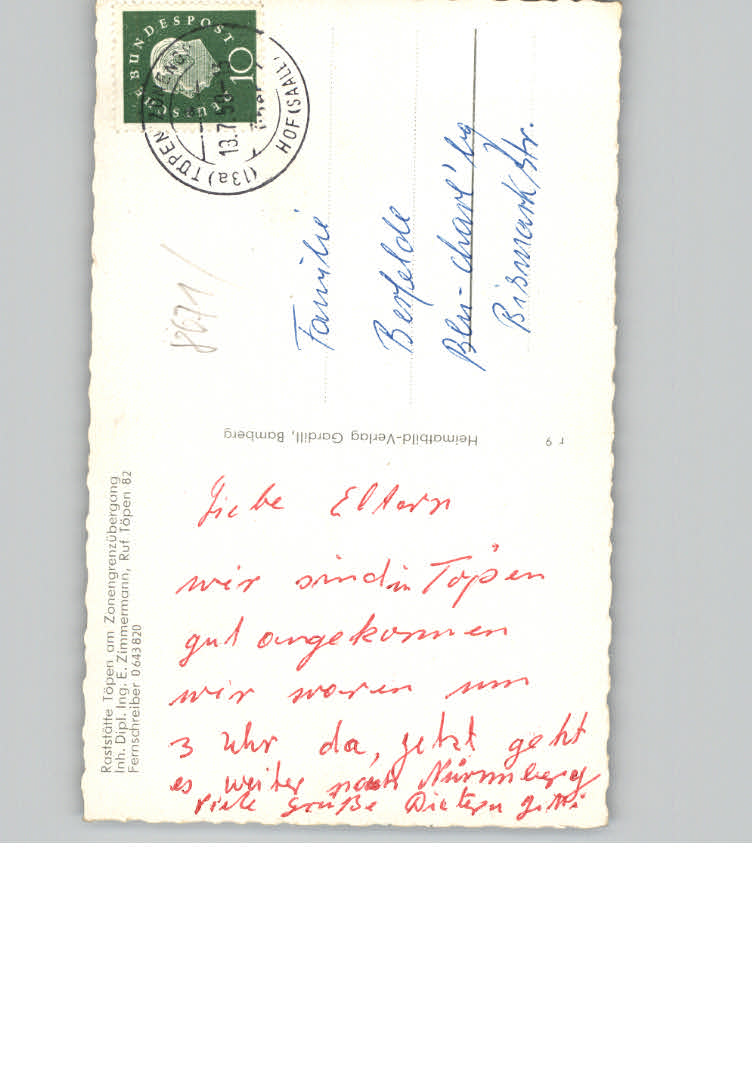 DEUTSCHE BUNDESPOST
10
(13a) TÖPEN
HOF (SAALE)
13.7.59
8671/
Familie
Berfelde
Bln-Charl'bg
Bismarkstr.
Heimatbild-Verlag Gardill, Bamberg
r 9
Raststätte Töpen am Zonengrenzübergang
Inh. Dipl. Ing. E. Zimmermann, Ruf Töpen 82
Fernschreiber 0643820
Liebe Eltern
wir sind in Töpen
gut angekommen
wir waren um
3 Uhr da, jetzt geht
es weiter nach Nürnmberg
viele Grüße Dieter u